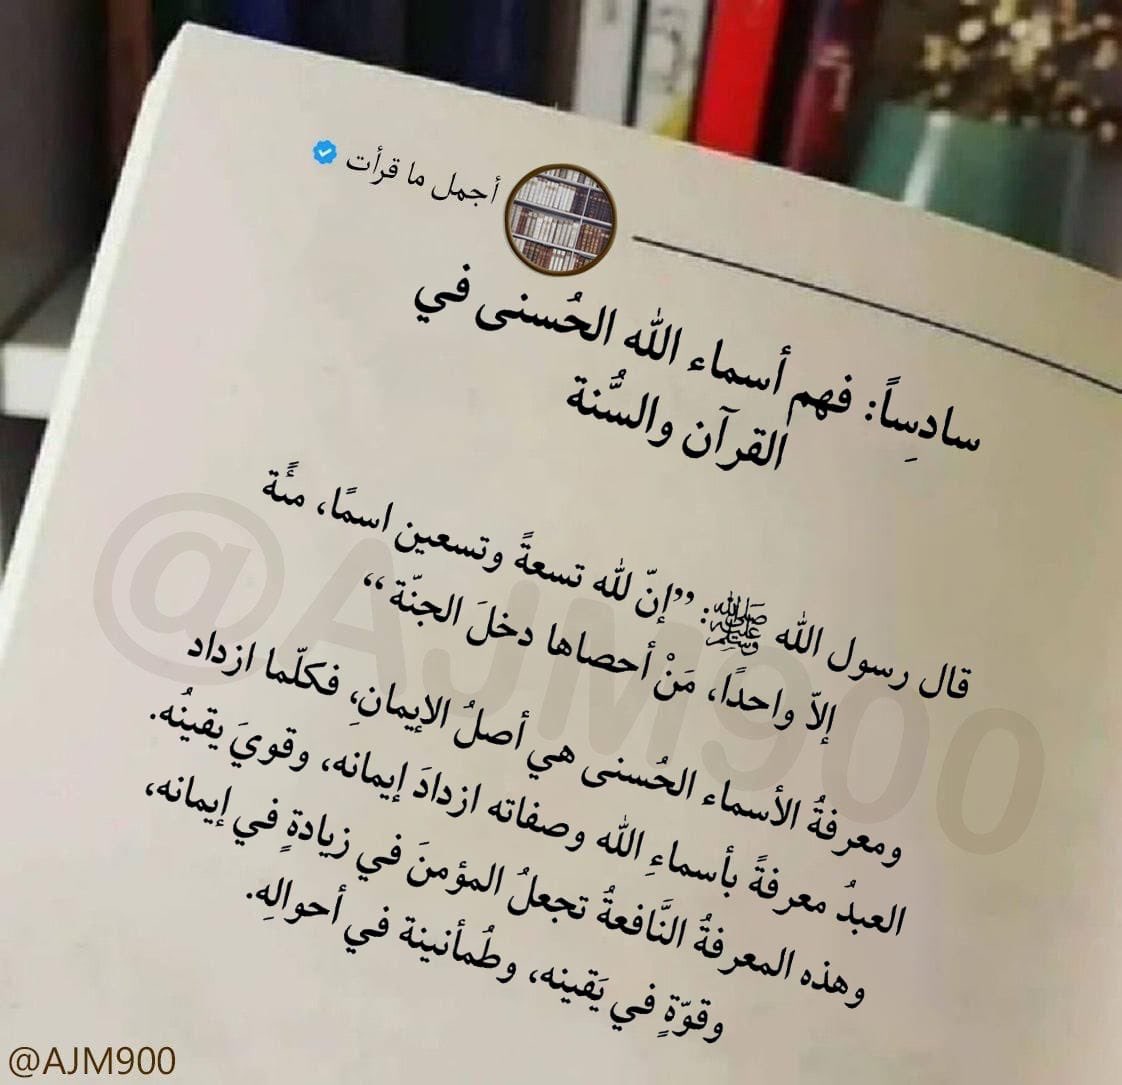 أجمل ما قرأت
سادِساً: فهم أسماء الله الحُسنى في
القرآن والسُّنة
قال رسول الله ﷺ: ”إنّ لله تسعةً وتسعين اسمًا، مئًة
إلاّ واحدًا، مَنْ أحصاها دخلَ الجنّة“
ومعرفةُ الأسماء الحُسنى هي أصلُ الإيمانِ، فكلّما ازداد
العبدُ معرفةً بأسماءِ الله وصفاته ازدادَ إيمانه، وقويَ يقينُه.
وهذه المعرفةُ النَّافعةُ تجعلُ المؤمنَ في زيادةٍ في إيمانه،
وقوّةٍ في يَقينه، وطُمأنينة في أحوالِه.
@AJM900
@AJM900